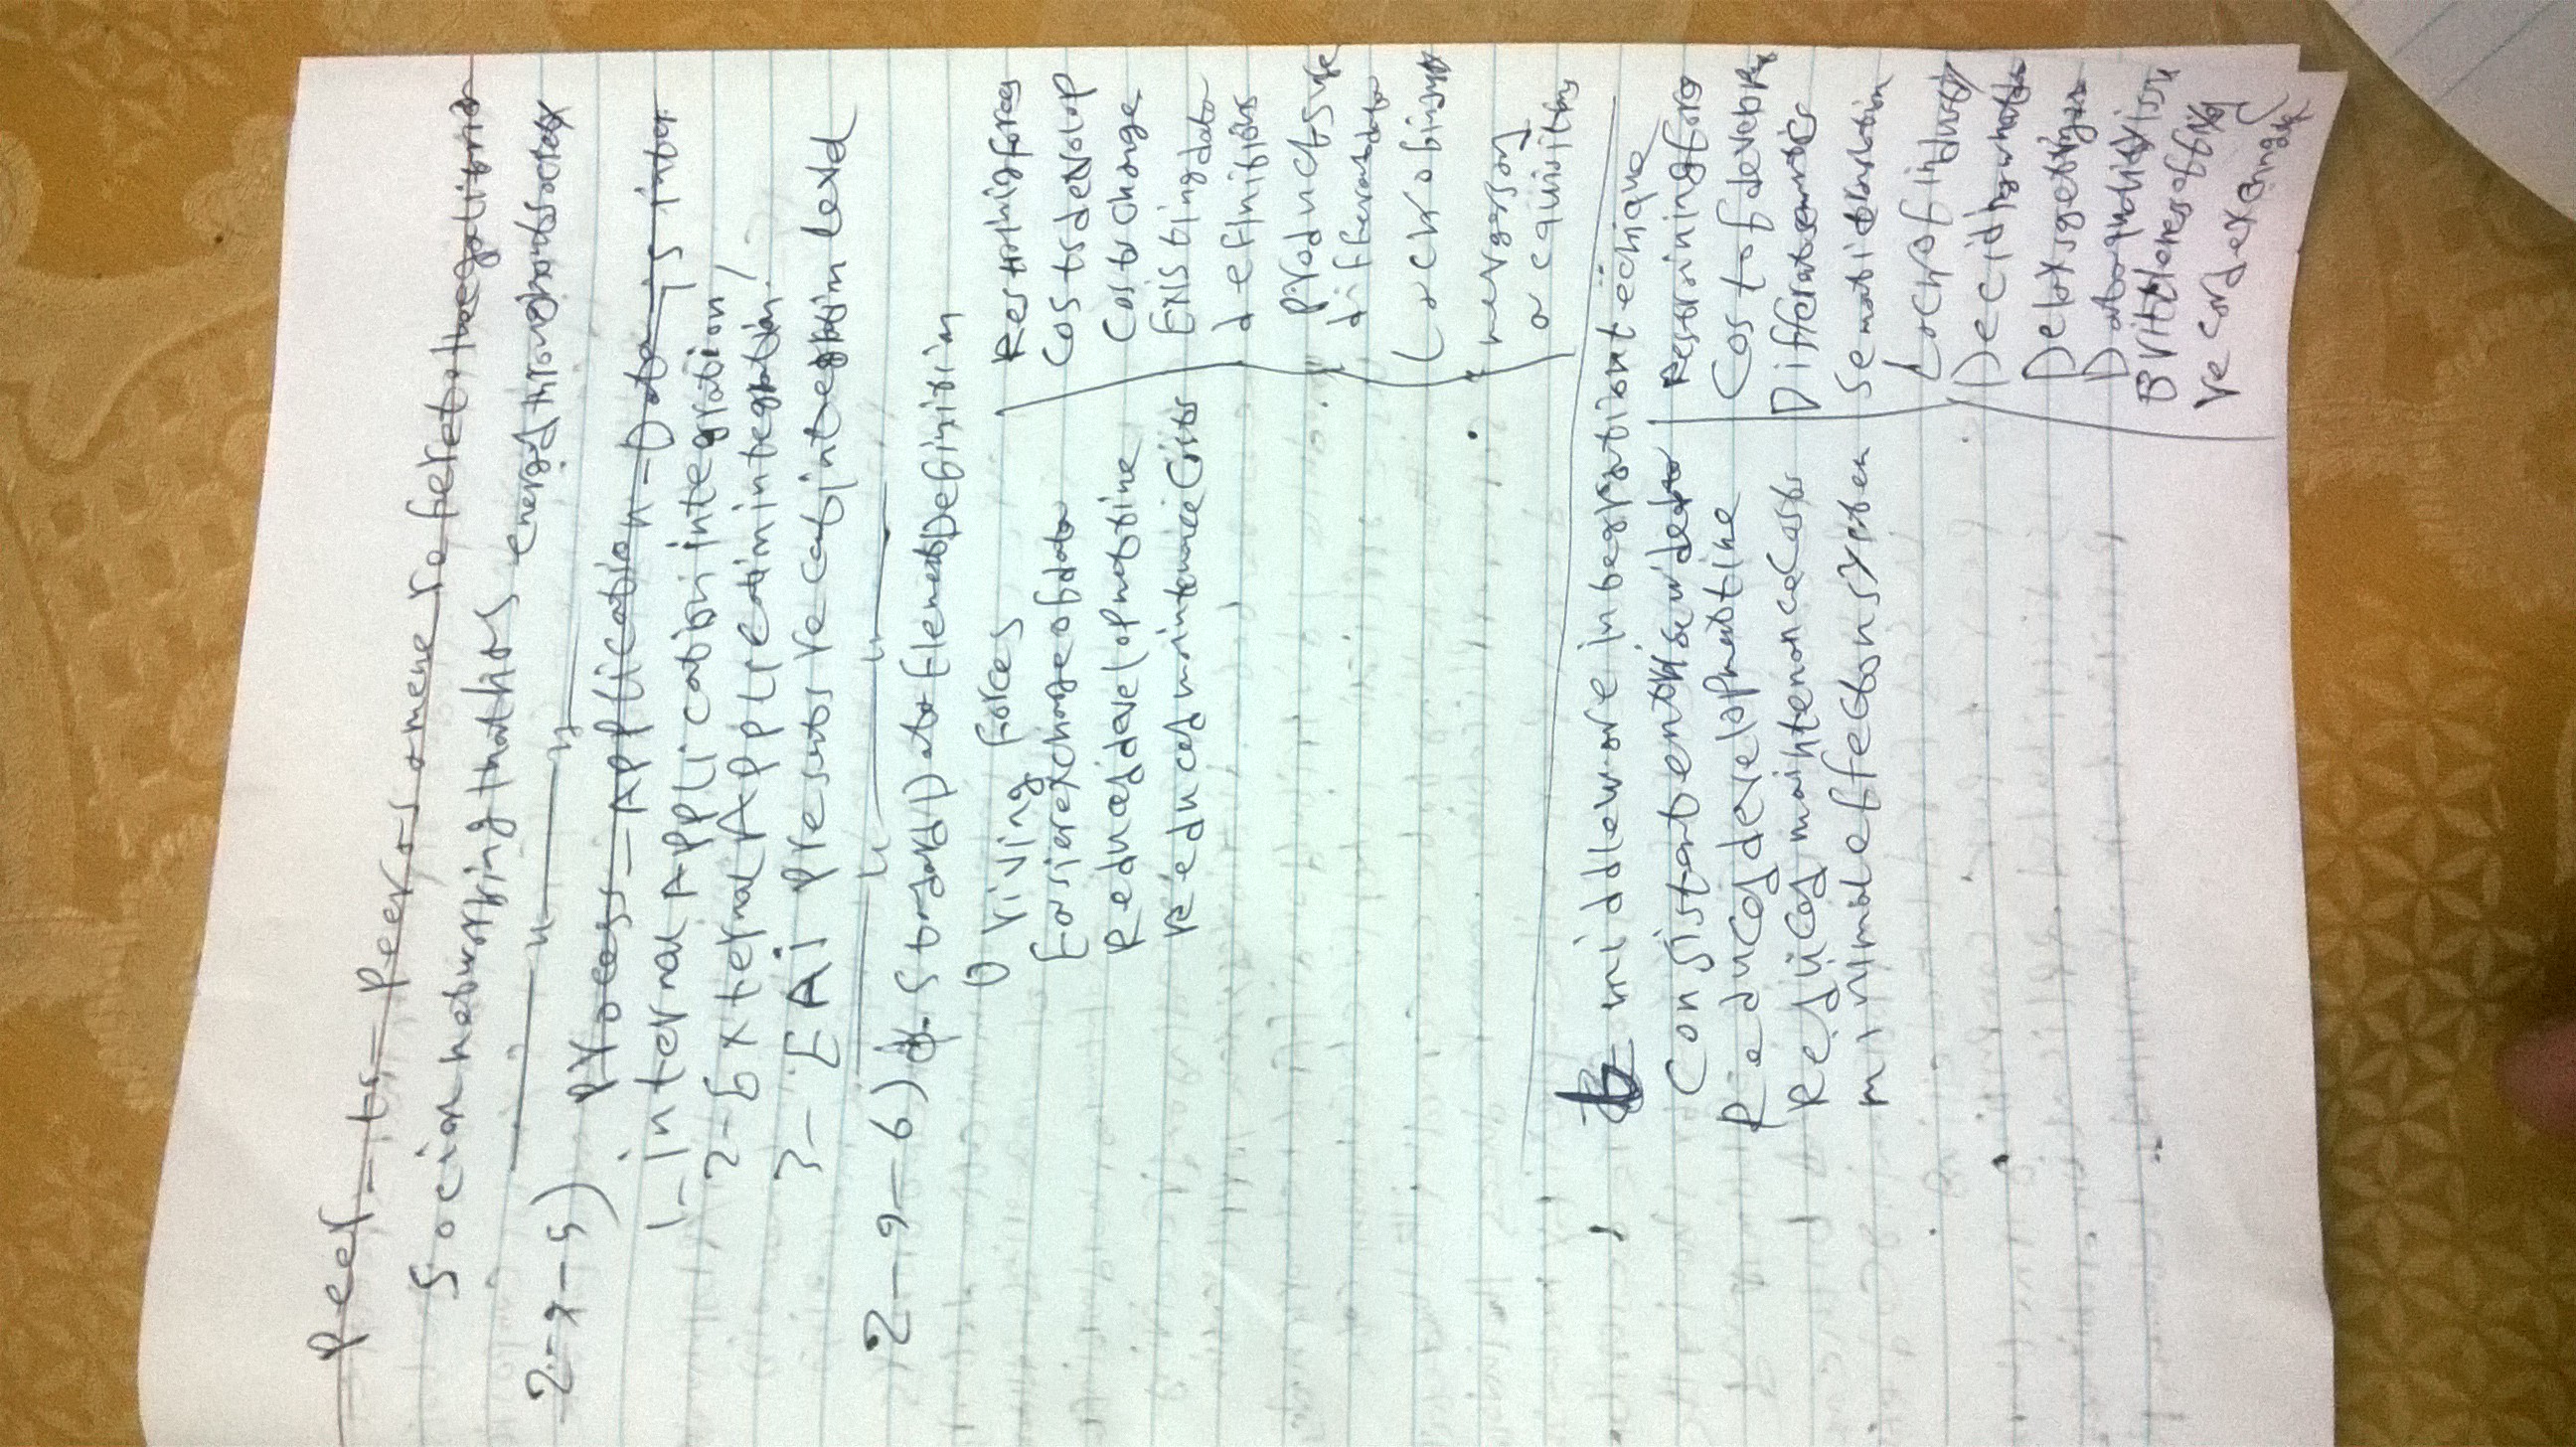 Peer-to-Peer as a mene refer to the egalitaria
Social networking that has energed throughout society
2-9-5)
Process-Application-Data is inter
1- internal Application integration,
2- External Application integration.
3- EAi Presents re cast integration level
2-9-6) a. Standard Data Element Definition
Driving Forces
Easier exchange of data
Reduced development time
Reduced maintenance Costs
Restraining forces
Costs devolop
Costs change
Existing data
definitions
Products use
different data
Lack of
mergers
acquisitions
b middleware integration techique
Consistent
Reduced development time
Reduced maintenance Costs
minimal effect on system
Restraining forces
Cost of
Different semantics
Sematic translation
Lack of industry
Deciding what
Delays getting
Data quality issu
Brittleness of fixed
record